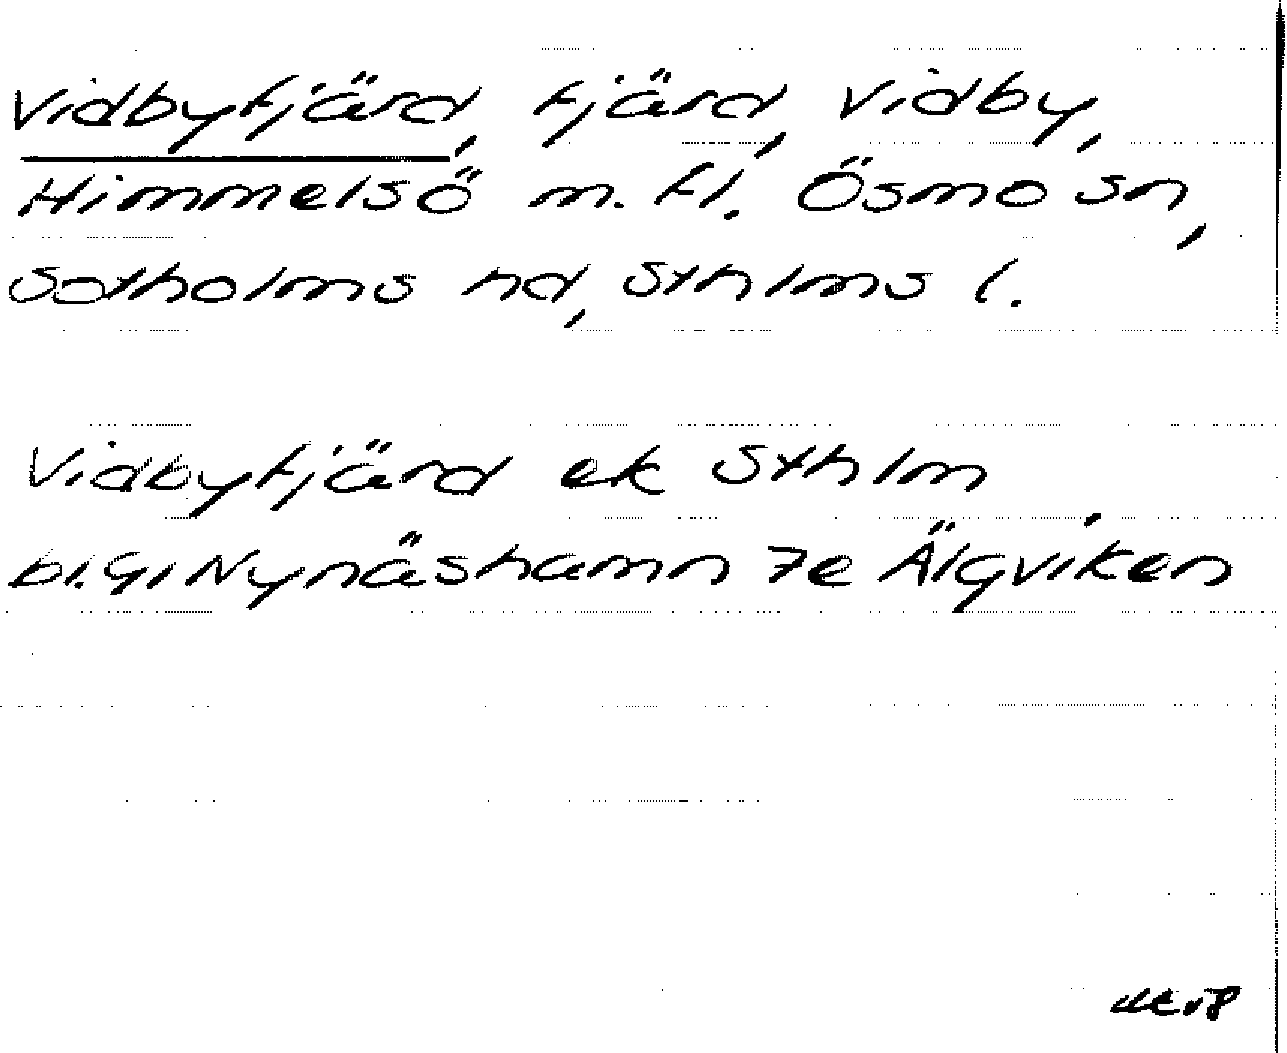 Vidbyfjärd, fjärd, Vidby,
Himmelsö m.fl. Ösmo sn,
Sotholms hd, Sthlms l.
Vidbyfjärd ek Sthlm,
bl. 91 Nynäshamn 7e Älgviken